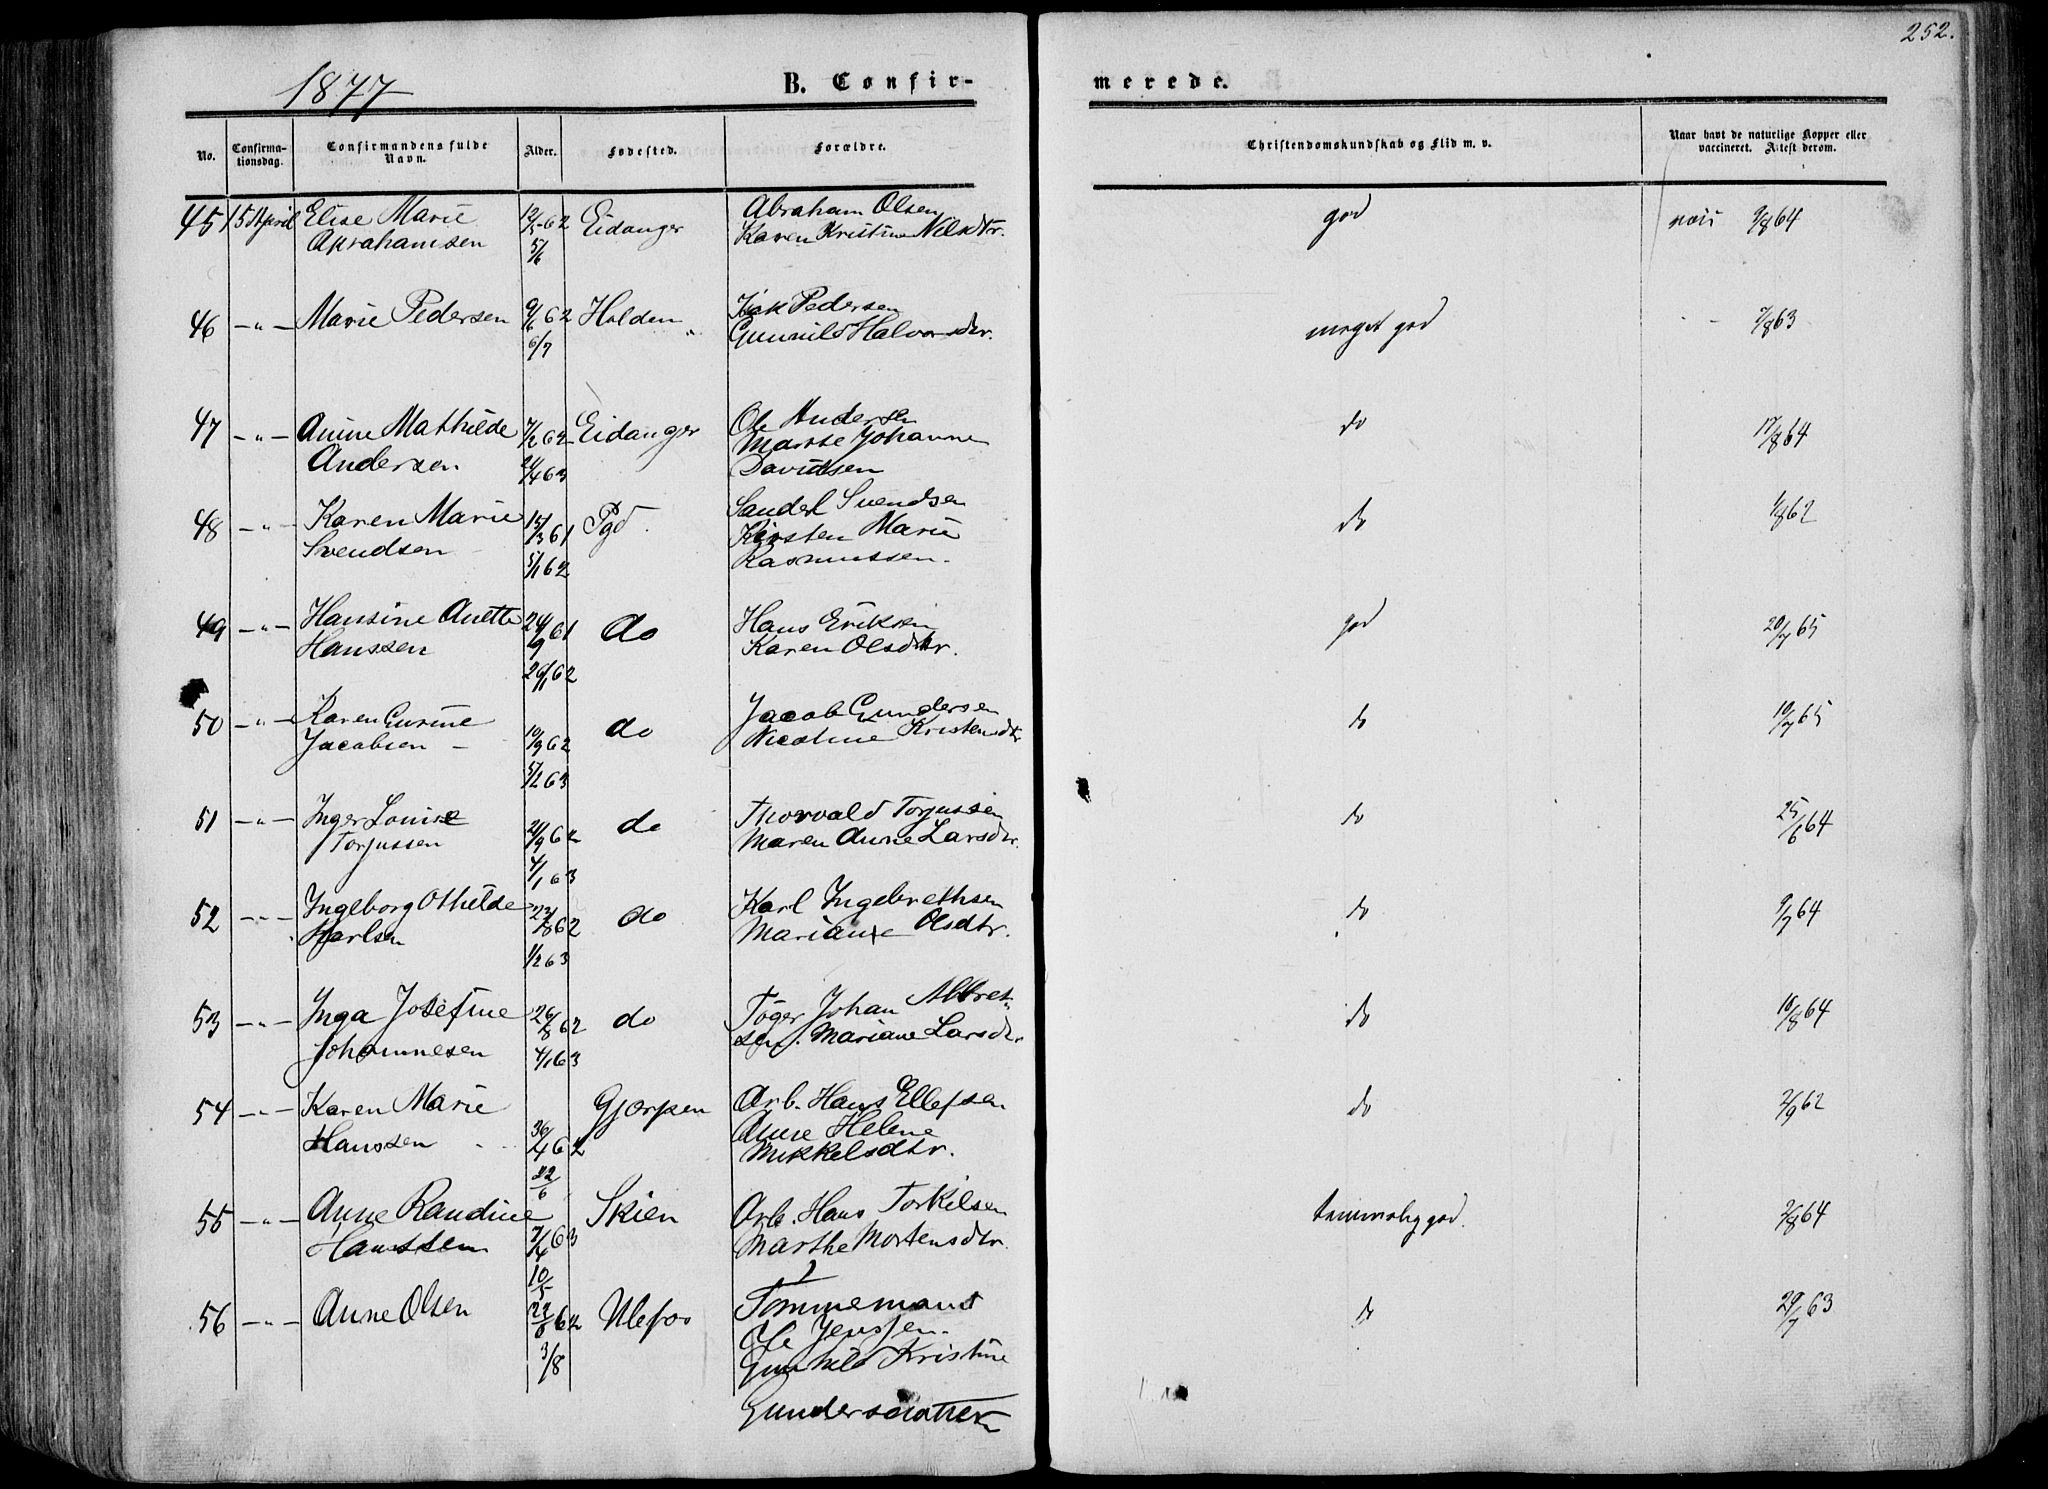 252.
1877
B. Confirmerede.
No. Confirmationsdag. Confirmandens fulde Navn. Alder. Fødested. Forældre. Christendomskundskab og Flid m. v. Naar havt de naturlige Kopper eller vaccineret. Attest derom.
45 15 April Elise Marie 12/5 62 Eidanger Abraham Olsen god 9/8 64
Abrahamsen 5/6 Karen Kristine Nilsdtr.
46 -"- Marie Pedersen 9/6 62 Holden Pedersen meget god 7/8 63
6/7 Gunnild Halvorsdtr.
47 -"- Anine Mathilde 7/2 62 Eidanger Ole Andersen do 17/8 64
Andersen 21/4 63 Marte Johanne
Davidsen
48 -"- Karen Marie 15/3 61 Pgd. Sander Svendsen do 1/8 62
Svendsen 5/1 62 Kirsten Marie
Rasmussen.
49 -"- Hansine Anette 24/9 61 do Hans Eriksen god 20/7 65
Hanssen 26/1 62 Karen Olsdtr.
50 -"- Karen Gurine do Jacob Gundersen do 19/7 65
Jacobsen - 19/9 62 Nicoline Kristensdtr
5/2 63
51 -"- Inger Louise do Thorvald Torjussen do 25/6 64
Torjussen 21/9 62 Maren Anne Larsdtr.
4/1 63
52 -"- Ingeborg Othilde 23/8 62 do Karl Ingebrethsen do 9/7 64
Karlsen 1/2 63 Mariane Olsdtr.
53 -"- Inga Josefine 26/8 62 do Töger Johan Albret- do 16/8 64
Johannesen 4/1 63 sen. Mariane Larsdtr
54 -"- Karen Marie Gjerpen Arb. Hans Ellefsen do 2/9 62
Hanssen 30/4 62 Anne Helene
22/6 Mikkelsdtr.
55 -"- Anne Randine Skien Arb. Hans Torkilsen temmelig god. 2/8 64
Hanssen 7/4 63 Marthe Mortensdtr.
10/5
56 -"- Anne Olsen 22/6 62 Ulefos Tömmemand do 29/7 63
3/8 Ole Jenssen.
Gunhild Kristine
Gundersdatter